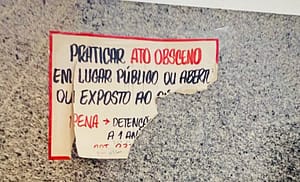 PRATICAR ATO OBSCENO
EM LUGAR PÚBLICO OU ABERT
OU EXPOSTO AO
PENA → DETENÇÃ
A 1 AN